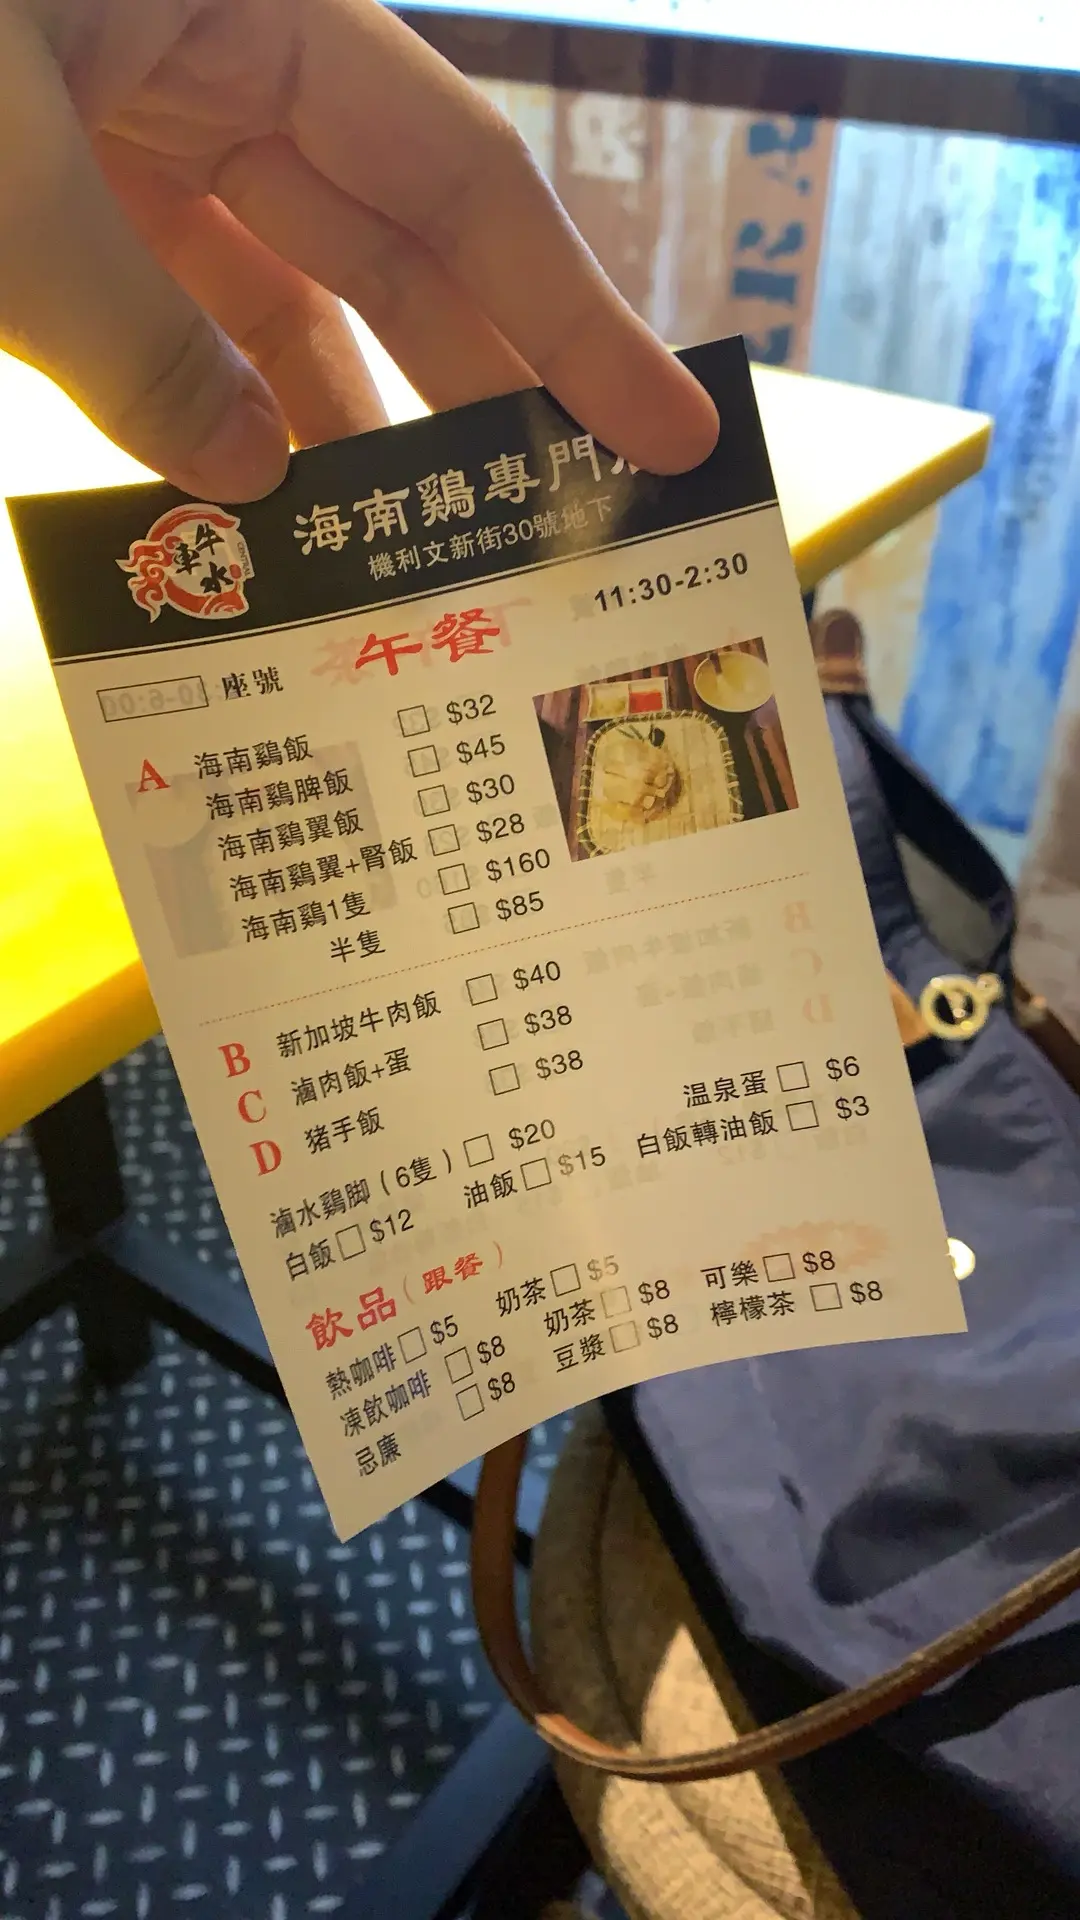 海南鷄專門
機利文新街30號地下
牛車水
午餐 11:30-2:30
座號
A 海南鷄飯 □ $32
海南鷄脾飯 □ $45
海南鷄翼飯 □ $30
海南鷄翼+腎飯 □ $28
海南鷄1隻 □ $160
半隻 □ $85
B 新加坡牛肉飯 □ $40
C 滷肉飯+蛋 □ $38
D 猪手飯 □ $38
温泉蛋 □ $6
滷水鷄脚（6隻）□ $20
白飯轉油飯 □ $3
白飯 □ $12 油飯 □ $15
飲品（跟餐）
熱咖啡 □ $5 奶茶 □ $5
凍飲咖啡 □ $8 奶茶 □ $8 可樂 □ $8
忌廉 □ $8 豆漿 □ $8 檸檬茶 □ $8